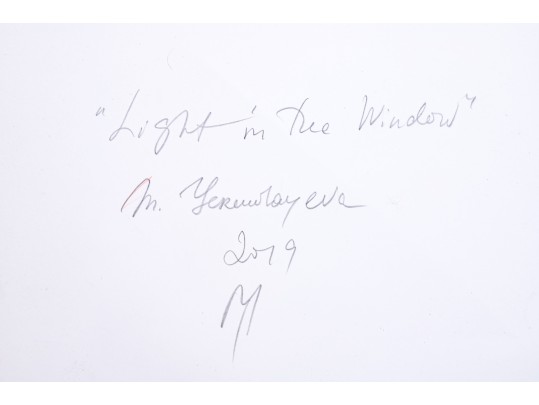 "Light in the Window"
M. Yermolayeva
2019